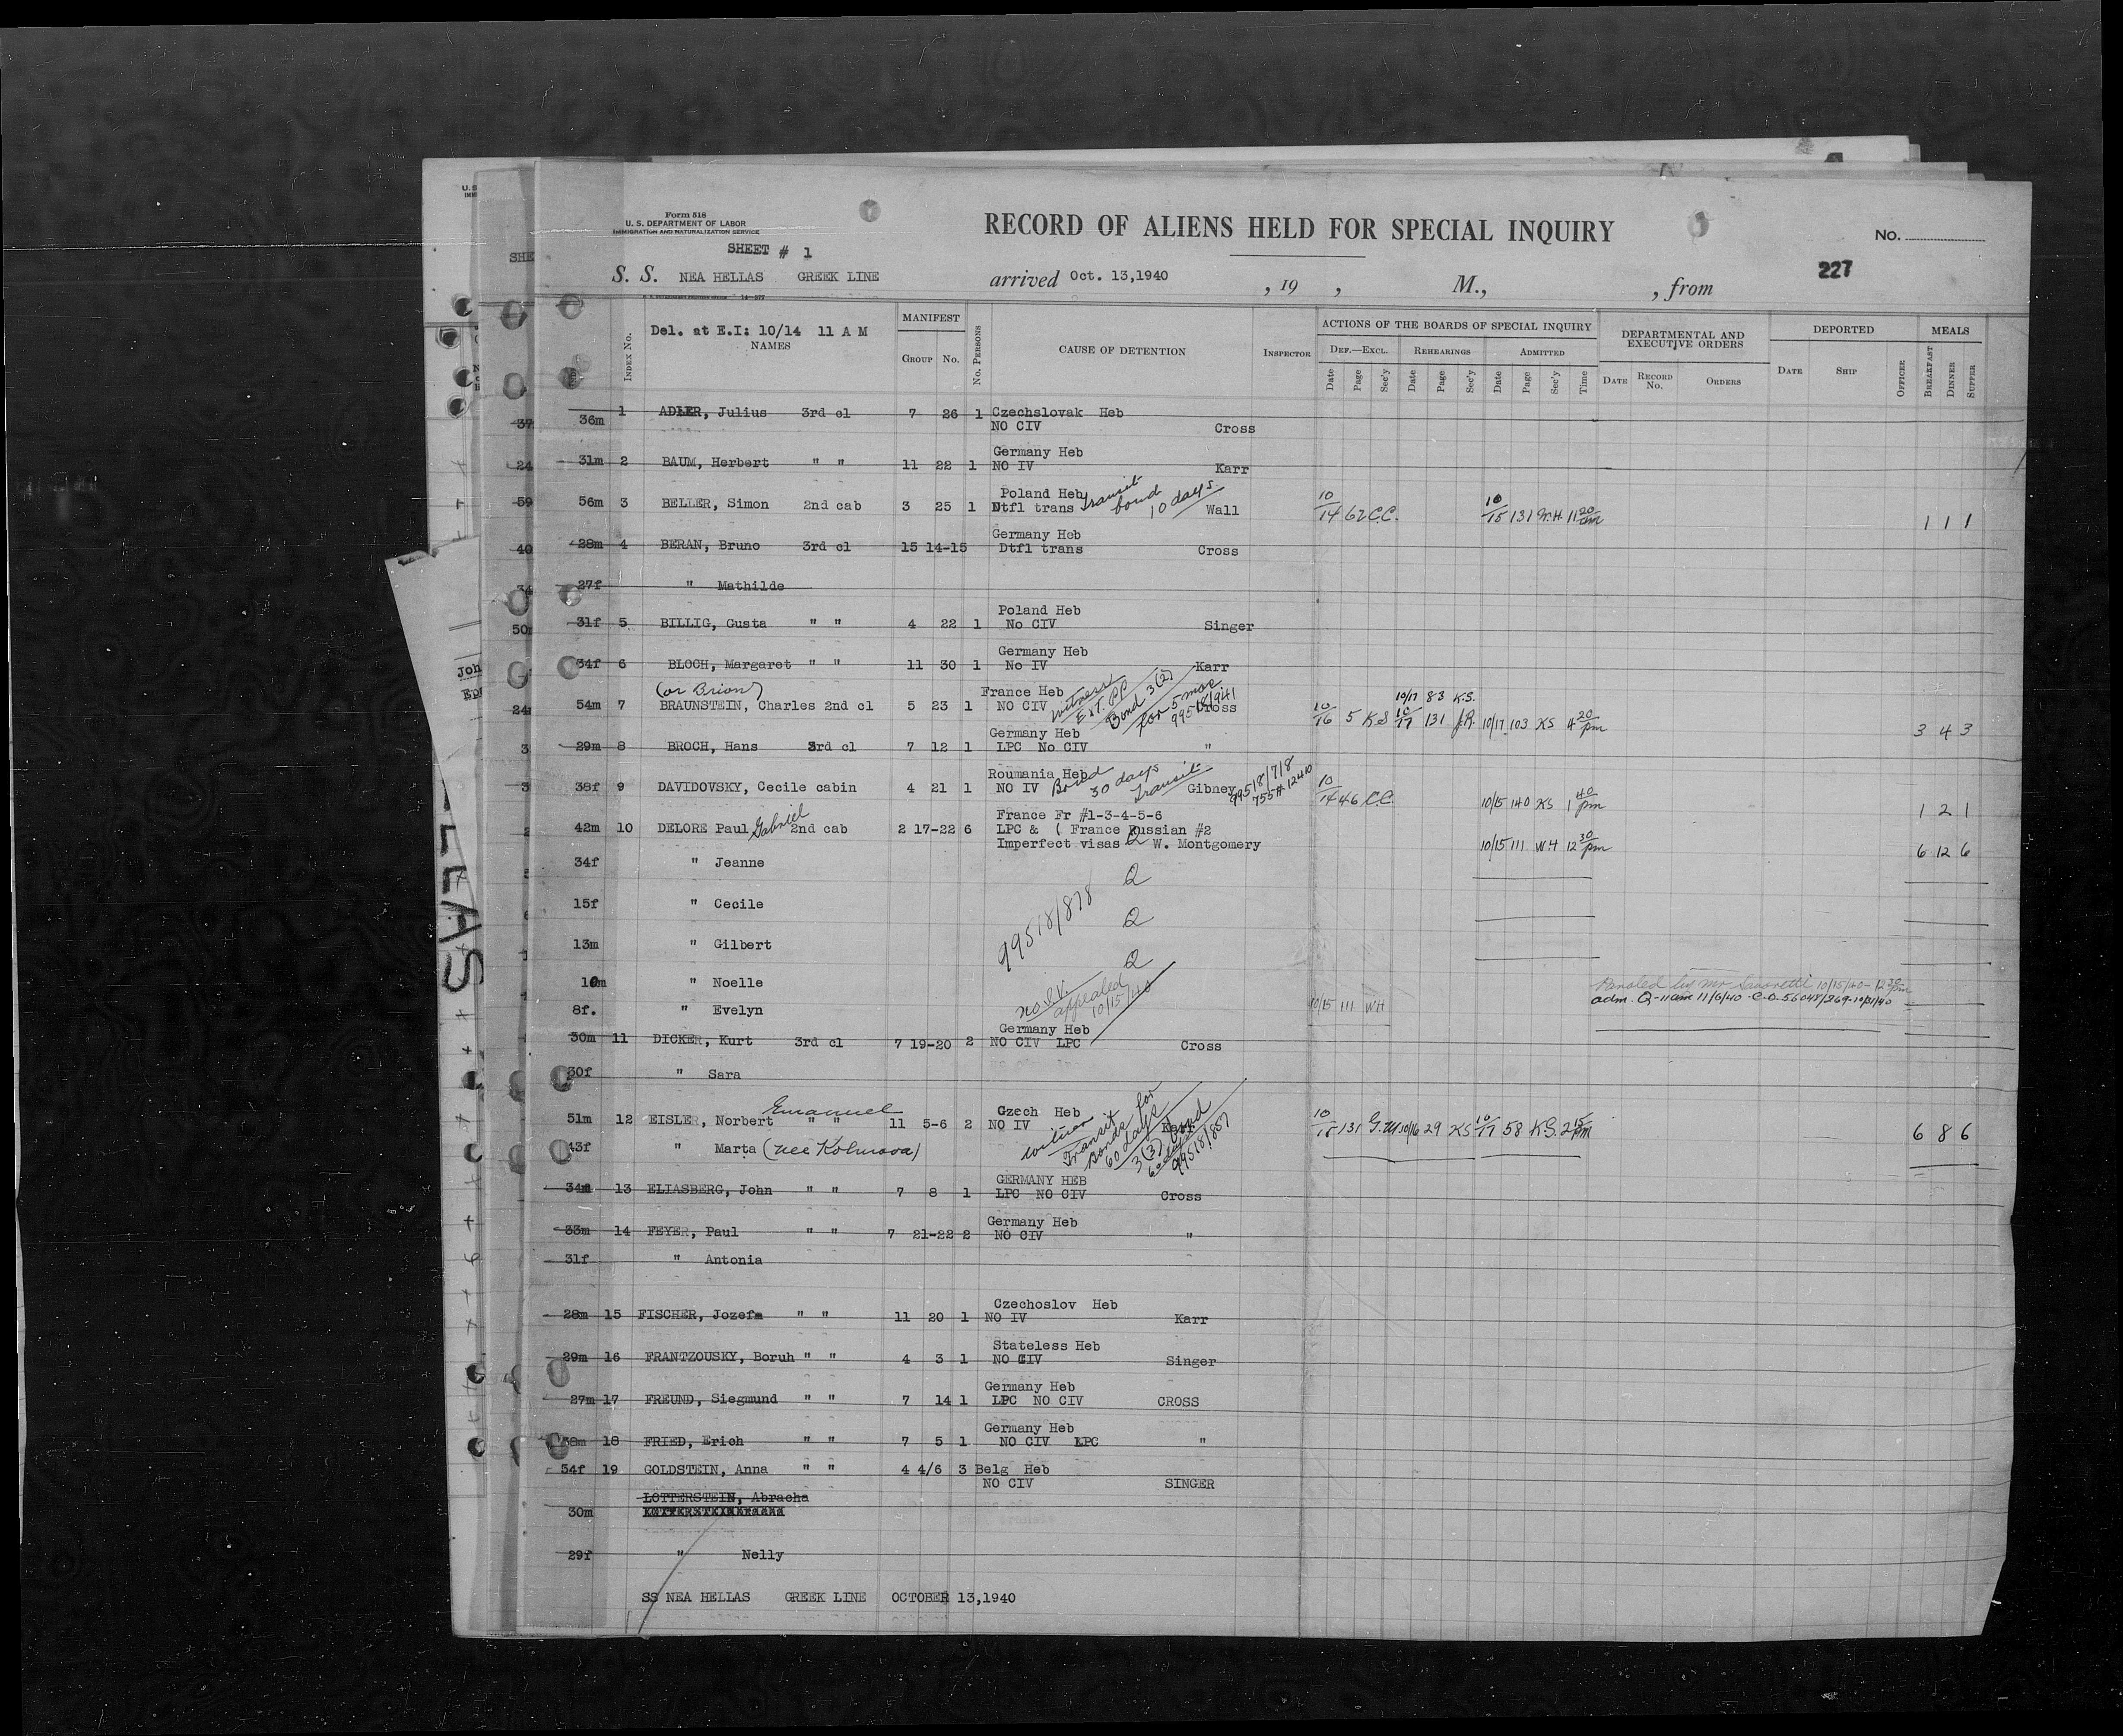 Form 518
U. S. DEPARTMENT OF LABOR
IMMIGRATION AND NATURALIZATION SERVICE
RECORD OF ALIENS HELD FOR SPECIAL INQUIRY
No.
SHEET # 1
227
S. S. NEA HELLAS GREEK LINE arrived Oct. 13,1940 , 19 , M., , from
Del. at E.I: 10/14 11 A M
Index No. NAMES MANIFEST Group No. No. Persons CAUSE OF DETENTION Inspector
ACTIONS OF THE BOARDS OF SPECIAL INQUIRY
Def.—Excl. Rehearings Admitted
Date Page Sec'y Date Page Sec'y Date Page Sec'y Time
DEPARTMENTAL AND EXECUTIVE ORDERS
Date Record No. Orders
DEPORTED
Date Ship Officer
MEALS
Breakfast Dinner Supper
36m 1 ADLER, Julius 3rd cl 7 26 1 Czechslovak Heb
NO CIV Cross
Germany Heb
31m 2 BAUM, Herbert " " 11 22 1 NO IV Karr
Poland Heb Transit
56m 3 BELLER, Simon 2nd cab 3 25 1 Dtfl trans bond 10 days Wall 10/14 62 C.C. 10/15 131 W.H. 11 20/am 1 1 1
Germany Heb
28m 4 BERAN, Bruno 3rd cl 15 14-15 Dtfl trans Cross
27f " Mathilde
Poland Heb
31f 5 BILLIG, Gusta " " 4 22 1 No CIV Singer
Germany Heb
34f 6 BLOCH, Margaret " " 11 30 1 No IV Karr
(or Brion) France Heb witness Ext. PP Bond 3(2) for 5 mos. 10/17 83 K.S.
54m 7 BRAUNSTEIN, Charles 2nd cl 5 23 1 NO CIV Cross 10/16 5 K.S 10/17 131 J.R. 10/17 103 KS 4 20/pm 3 4 3
Germany Heb
29m 8 BROCH, Hans 3rd cl 7 12 1 LPC No CIV "
Roumania Heb Bond 30 days Transit 99518/718
38f 9 DAVIDOVSKY, Cecile cabin 4 21 1 NO IV Gibney 10/14 46 C.C. 10/15 140 KS 1 40/pm 1 2 1
France Fr #1-3-4-5-6
42m 10 DELORE Paul Gabriel 2nd cab 2 17-22 6 LPC & ( France Russian #2
Imperfect visas Q W. Montgomery 10/15 111 WH 12 30/pm 6 12 6
34f " Jeanne Q
15f " Cecile 99518/878 Q
13m " Gilbert Q
10m " Noelle no I.V. appealed 10/15/40
adm. Q-11am 11/6/40
8f. " Evelyn 10/15 111 WH
Germany Heb
30m 11 DICKER, Kurt 3rd cl 7 19-20 2 NO CIV LPC Cross
30f " Sara
Emanuel Czech Heb
51m 12 EISLER, Norbert " " 11 5-6 2 NO IV Karr 10/15 131 G.M 10/16 29 KS 10/17 58 K.S. 2 15/pm 6 8 6
Transit Bonds for 60 days
43f " Marta (nee Kohnova) 3(3) bond 60 days 99518/857
GERMANY HEB
34m 13 ELIASBERG, John " " 7 8 1 LPC NO CIV Cross
Germany Heb
33m 14 FEYER, Paul " " 7 21-22 2 NO CIV "
31f " Antonia
Czechoslov Heb
28m 15 FISCHER, Jozef " " 11 20 1 NO IV Karr
Stateless Heb
29m 16 FRANTZOUSKY, Boruh " " 4 3 1 NO CIV Singer
Germany Heb
27m 17 FREUND, Siegmund " " 7 14 1 LPC NO CIV CROSS
Germany Heb
38m 18 FRIED, Erich " " 7 5 1 NO CIV LPC "
54f 19 GOLDSTEIN, Anna " " 4 4/6 3 Belg Heb
NO CIV SINGER
LOTTERSTEIN, Abracha
30m
29f " Nelly
SS NEA HELLAS GREEK LINE OCTOBER 13,1940